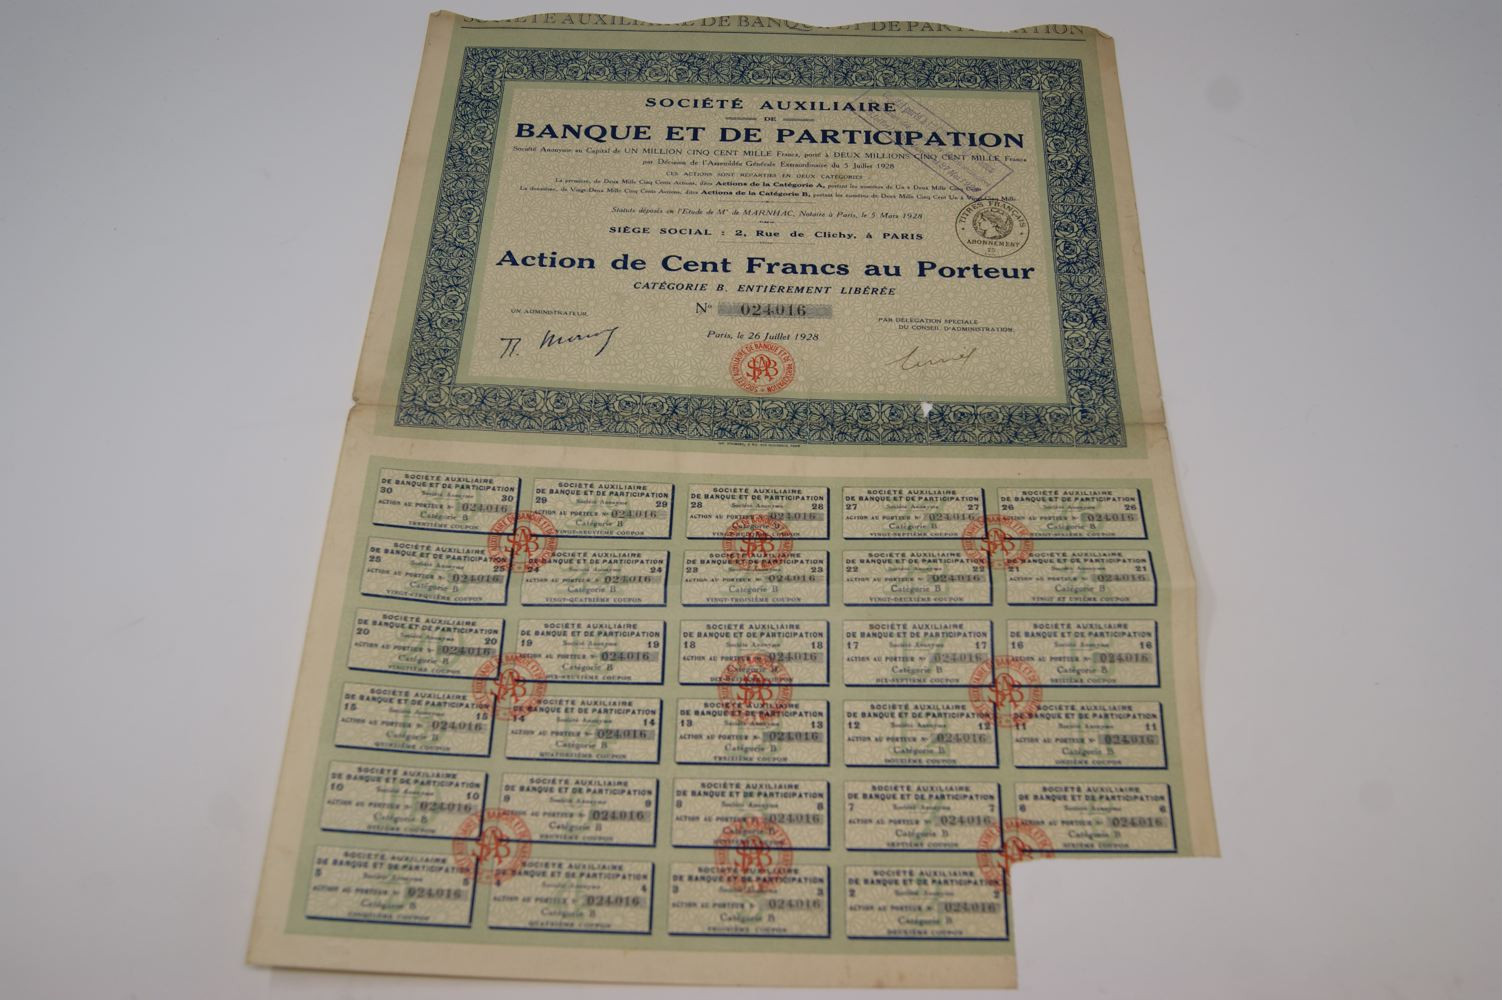 SOCIÉTÉ AUXILIAIRE DE BANQUE ET DE PARTICIPATION
SOCIÉTÉ AUXILIAIRE
DE
BANQUE ET DE PARTICIPATION
Société Anonyme au Capital de UN MILLION CINQ CENT MILLE Francs, porté à DEUX MILLIONS CINQ CENT MILLE Francs
par Décision de l'Assemblée Générale Extraordinaire du 5 Juillet 1928
CES ACTIONS SONT RÉPARTIES EN DEUX CATÉGORIES
La première, de Deux Mille Cinq Cents Actions, dites Actions de la Catégorie A, portant les numéros de Un à Deux Mille Cinq Cents
La deuxième, de Vingt-Deux Mille Cinq Cents Actions, dites Actions de la Catégorie B, portant les numéros de Deux Mille Cinq Cent Un à Vingt-Cinq Mille
Statuts déposés en l'Etude de Me de MARNHAC, Notaire à Paris, le 5 Mars 1928
SIÈGE SOCIAL : 2, Rue de Clichy, à PARIS
TITRES FRANÇAIS
ABONNEMENT
Action de Cent Francs au Porteur
CATÉGORIE B. ENTIÈREMENT LIBÉRÉE
No 024016
UN ADMINISTRATEUR,
PAR DÉLÉGATION SPÉCIALE
DU CONSEIL D'ADMINISTRATION,
Paris, le 26 Juillet 1928
SOCIÉTÉ AUXILIAIRE DE BANQUE ET DE PARTICIPATION
SOCIÉTÉ AUXILIAIRE
DE BANQUE ET DE PARTICIPATION
30 Société Anonyme 30
ACTION AU PORTEUR No 024016
Catégorie B
TRENTIÈME COUPON
SOCIÉTÉ AUXILIAIRE
DE BANQUE ET DE PARTICIPATION
29 Société Anonyme 29
ACTION AU PORTEUR No 024016
Catégorie B
VINGT-NEUVIÈME COUPON
SOCIÉTÉ AUXILIAIRE
DE BANQUE ET DE PARTICIPATION
28 Société Anonyme 28
ACTION AU PORTEUR No 024016
Catégorie B
VINGT-HUITIÈME COUPON
SOCIÉTÉ AUXILIAIRE
DE BANQUE ET DE PARTICIPATION
27 Société Anonyme 27
ACTION AU PORTEUR No 024016
Catégorie B
VINGT-SEPTIÈME COUPON
SOCIÉTÉ AUXILIAIRE
DE BANQUE ET DE PARTICIPATION
26 Société Anonyme 26
ACTION AU PORTEUR No 024016
Catégorie B
VINGT-SIXIÈME COUPON
SOCIÉTÉ AUXILIAIRE
DE BANQUE ET DE PARTICIPATION
25 Société Anonyme 25
ACTION AU PORTEUR No 024016
Catégorie B
VINGT-CINQUIÈME COUPON
SOCIÉTÉ AUXILIAIRE
DE BANQUE ET DE PARTICIPATION
24 Société Anonyme 24
ACTION AU PORTEUR No 024016
Catégorie B
VINGT-QUATRIÈME COUPON
SOCIÉTÉ AUXILIAIRE
DE BANQUE ET DE PARTICIPATION
23 Société Anonyme 23
ACTION AU PORTEUR No 024016
Catégorie B
VINGT-TROISIÈME COUPON
SOCIÉTÉ AUXILIAIRE
DE BANQUE ET DE PARTICIPATION
22 Société Anonyme 22
ACTION AU PORTEUR No 024016
Catégorie B
VINGT-DEUXIÈME COUPON
SOCIÉTÉ AUXILIAIRE
DE BANQUE ET DE PARTICIPATION
21 Société Anonyme 21
ACTION AU PORTEUR No 024016
Catégorie B
VINGT ET UNIÈME COUPON
SOCIÉTÉ AUXILIAIRE
DE BANQUE ET DE PARTICIPATION
20 Société Anonyme 20
ACTION AU PORTEUR No 024016
Catégorie B
VINGTIÈME COUPON
SOCIÉTÉ AUXILIAIRE
DE BANQUE ET DE PARTICIPATION
19 Société Anonyme 19
ACTION AU PORTEUR No 024016
Catégorie B
DIX-NEUVIÈME COUPON
SOCIÉTÉ AUXILIAIRE
DE BANQUE ET DE PARTICIPATION
18 Société Anonyme 18
ACTION AU PORTEUR No 024016
Catégorie B
DIX-HUITIÈME COUPON
SOCIÉTÉ AUXILIAIRE
DE BANQUE ET DE PARTICIPATION
17 Société Anonyme 17
ACTION AU PORTEUR No 024016
Catégorie B
DIX-SEPTIÈME COUPON
SOCIÉTÉ AUXILIAIRE
DE BANQUE ET DE PARTICIPATION
16 Société Anonyme 16
ACTION AU PORTEUR No 024016
Catégorie B
SEIZIÈME COUPON
SOCIÉTÉ AUXILIAIRE
DE BANQUE ET DE PARTICIPATION
15 Société Anonyme 15
ACTION AU PORTEUR No 024016
Catégorie B
QUINZIÈME COUPON
SOCIÉTÉ AUXILIAIRE
DE BANQUE ET DE PARTICIPATION
14 Société Anonyme 14
ACTION AU PORTEUR No 024016
Catégorie B
QUATORZIÈME COUPON
SOCIÉTÉ AUXILIAIRE
DE BANQUE ET DE PARTICIPATION
13 Société Anonyme 13
ACTION AU PORTEUR No 024016
Catégorie B
TREIZIÈME COUPON
SOCIÉTÉ AUXILIAIRE
DE BANQUE ET DE PARTICIPATION
12 Société Anonyme 12
ACTION AU PORTEUR No 024016
Catégorie B
DOUZIÈME COUPON
SOCIÉTÉ AUXILIAIRE
DE BANQUE ET DE PARTICIPATION
11 Société Anonyme 11
ACTION AU PORTEUR No 024016
Catégorie B
ONZIÈME COUPON
SOCIÉTÉ AUXILIAIRE
DE BANQUE ET DE PARTICIPATION
10 Société Anonyme 10
ACTION AU PORTEUR No 024016
Catégorie B
DIXIÈME COUPON
SOCIÉTÉ AUXILIAIRE
DE BANQUE ET DE PARTICIPATION
9 Société Anonyme 9
ACTION AU PORTEUR No 024016
Catégorie B
NEUVIÈME COUPON
SOCIÉTÉ AUXILIAIRE
DE BANQUE ET DE PARTICIPATION
8 Société Anonyme 8
ACTION AU PORTEUR No 024016
Catégorie B
HUITIÈME COUPON
SOCIÉTÉ AUXILIAIRE
DE BANQUE ET DE PARTICIPATION
7 Société Anonyme 7
ACTION AU PORTEUR No 024016
Catégorie B
SEPTIÈME COUPON
SOCIÉTÉ AUXILIAIRE
DE BANQUE ET DE PARTICIPATION
6 Société Anonyme 6
ACTION AU PORTEUR No 024016
Catégorie B
SIXIÈME COUPON
SOCIÉTÉ AUXILIAIRE
DE BANQUE ET DE PARTICIPATION
5 Société Anonyme 5
ACTION AU PORTEUR No 024016
Catégorie B
CINQUIÈME COUPON
SOCIÉTÉ AUXILIAIRE
DE BANQUE ET DE PARTICIPATION
4 Société Anonyme 4
ACTION AU PORTEUR No 024016
Catégorie B
QUATRIÈME COUPON
SOCIÉTÉ AUXILIAIRE
DE BANQUE ET DE PARTICIPATION
3 Société Anonyme 3
ACTION AU PORTEUR No 024016
Catégorie B
TROISIÈME COUPON
SOCIÉTÉ AUXILIAIRE
DE BANQUE ET DE PARTICIPATION
2 Société Anonyme 2
ACTION AU PORTEUR No 024016
Catégorie B
DEUXIÈME COUPON